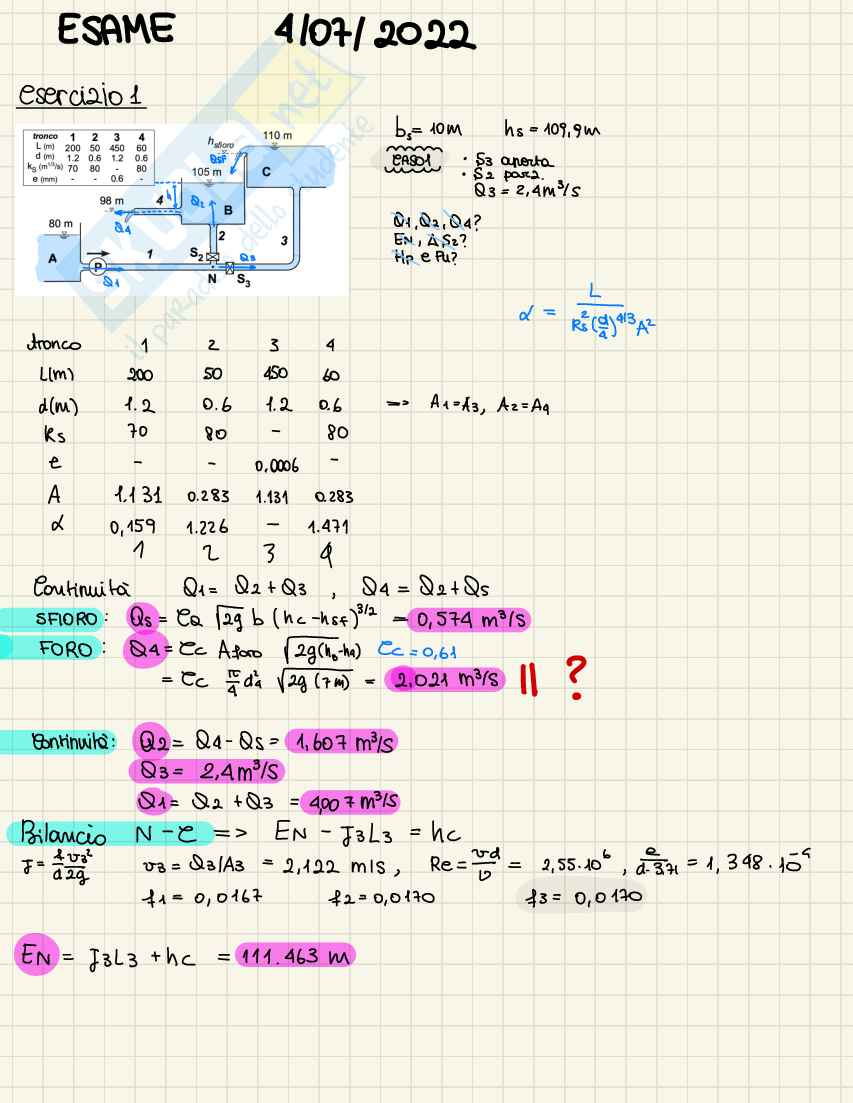 ESAME 4/07/2022
esercizio 1
tronco 1 2 3 4
L (m) 200 50 450 60
d (m) 1.2 0.6 1.2 0.6
kS (m1/3/s) 70 80 - 80
e (mm) - - 0.6 -
110 m
hsfioro
QSF
105 m
C
98 m
4
h
Q2
B
Q4
80 m
2
3
A
1
S2
Q3
P
Q1
N
S3
bs = 10m hs = 109,9m
CASO1 · S3 aperta
· S2 parz.
Q3 = 2,4 m³/s
Q1, Q2, Q4?
EN, ΔS2?
Hp e Pu?
α = L / Ks² (d/4)^4/3 A²
tronco 1 2 3 4
L(m) 200 50 450 60
d(m) 1.2 0.6 1.2 0.6 => A1=A3, A2=A4
Ks 70 80 - 80
e - - 0,0006 -
A 1.131 0.283 1.131 0.283
α 0,159 1.226 - 1.471
1 2 3 4
Continuità Q1 = Q2 + Q3 , Q4 = Q2 + Qs
SFIORO: Qs = CQ √2g b (hc-hsf)^3/2 = 0,574 m³/s
FORO: Q4 = Cc Aforo √2g(hb-ha) Cc = 0,61
= Cc π/4 d4² √2g (7m) = 2,021 m³/s || ?
Continuità: Q2 = Q4 - Qs = 1,607 m³/s
Q3 = 2,4 m³/s
Q1 = Q2 + Q3 = 4,007 m³/s
Bilancio N-C => EN - J3L3 = hc
J = f v3² / d 2g v3 = Q3/A3 = 2,122 m/s , Re = vd/ν = 2,55·10⁶ , e/d·3,71 = 1,348·10⁻⁴
f1 = 0,0167 f2 = 0,0170 f3 = 0,0170
EN = J3L3 + hc = 111.463 m